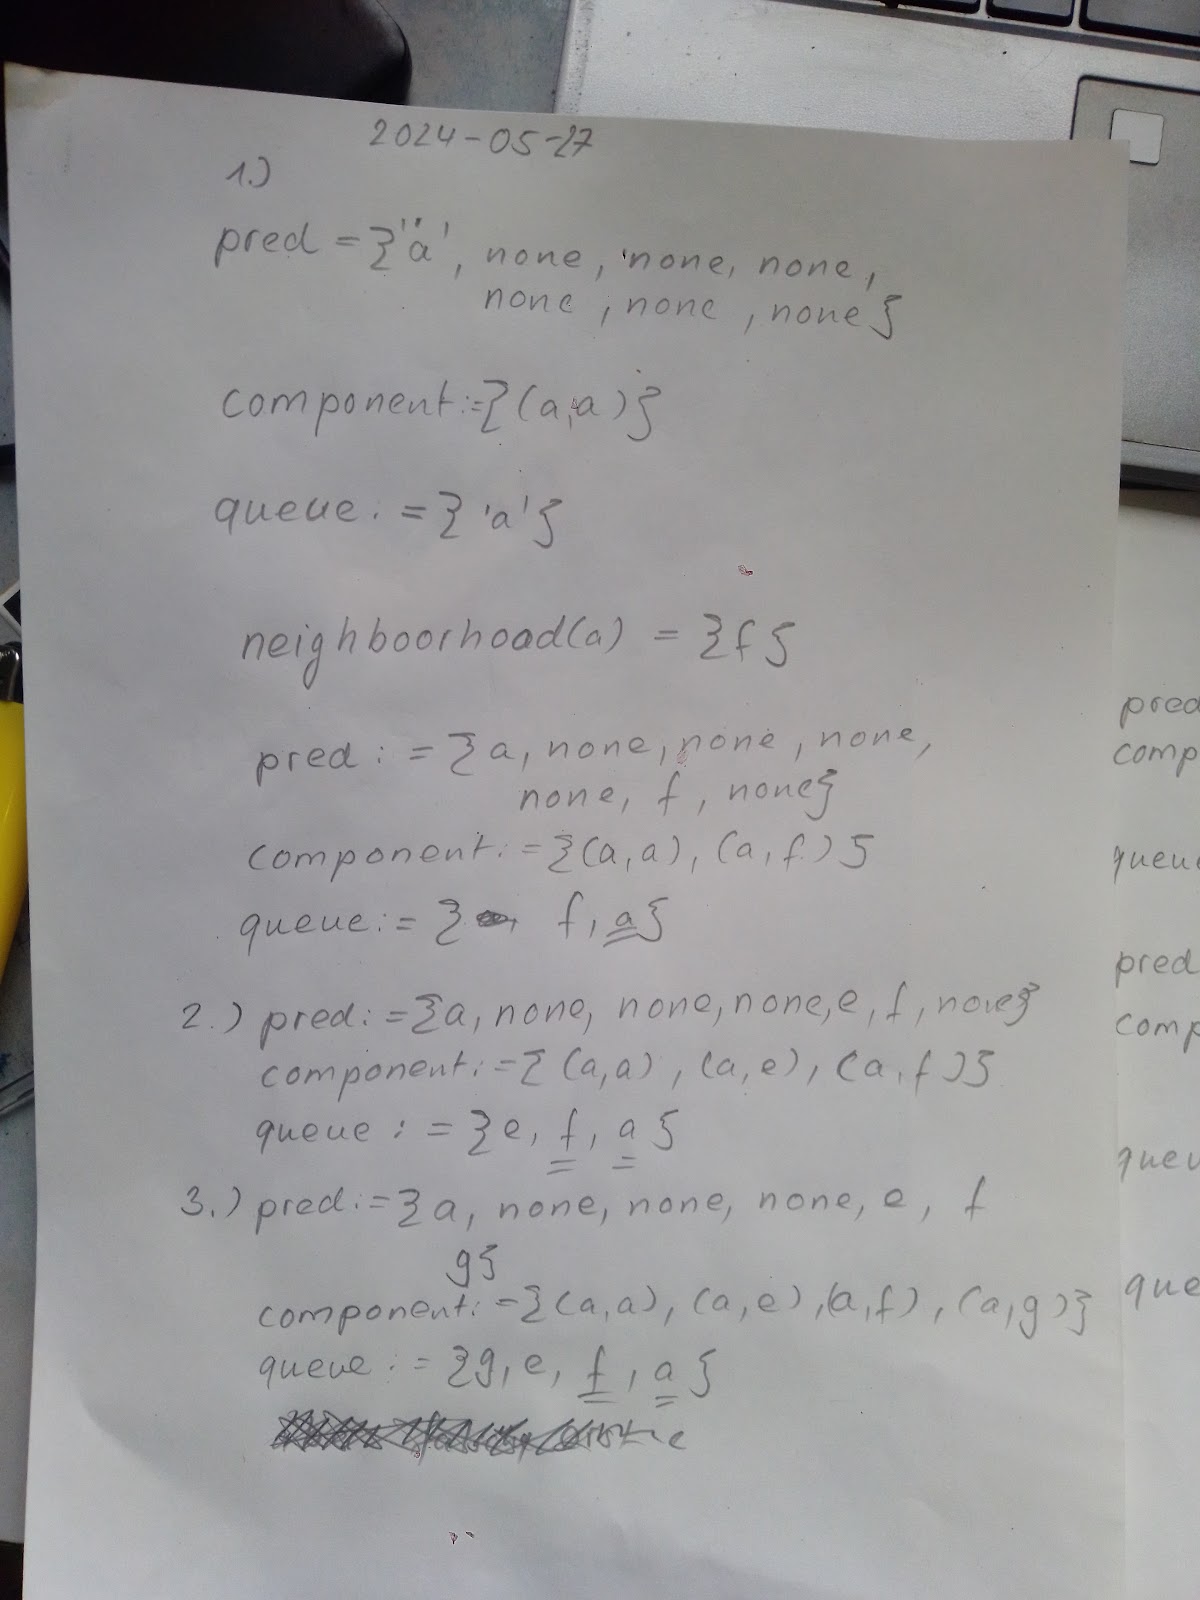 2024-05-27
1.)
pred = {'a', none, none, none,
none, none, none}
component:={(a,a)}
queue := {'a'}
neighboorhoad(a) = {f}
pred := {a, none, none, none,
none, f, none}
component:={(a,a), (a,f)}
queue:= { f, a}
2.) pred:={a, none, none, none, e, f, none}
component:={(a,a), (a,e), (a,f)}
queue := {e, f, a}
3.) pred:={a, none, none, none, e, f
g}
component:={(a,a), (a,e), (a,f), (a,g)}
queue := {g, e, f, a}
pred
comp
queue
pred
comp
queu
que